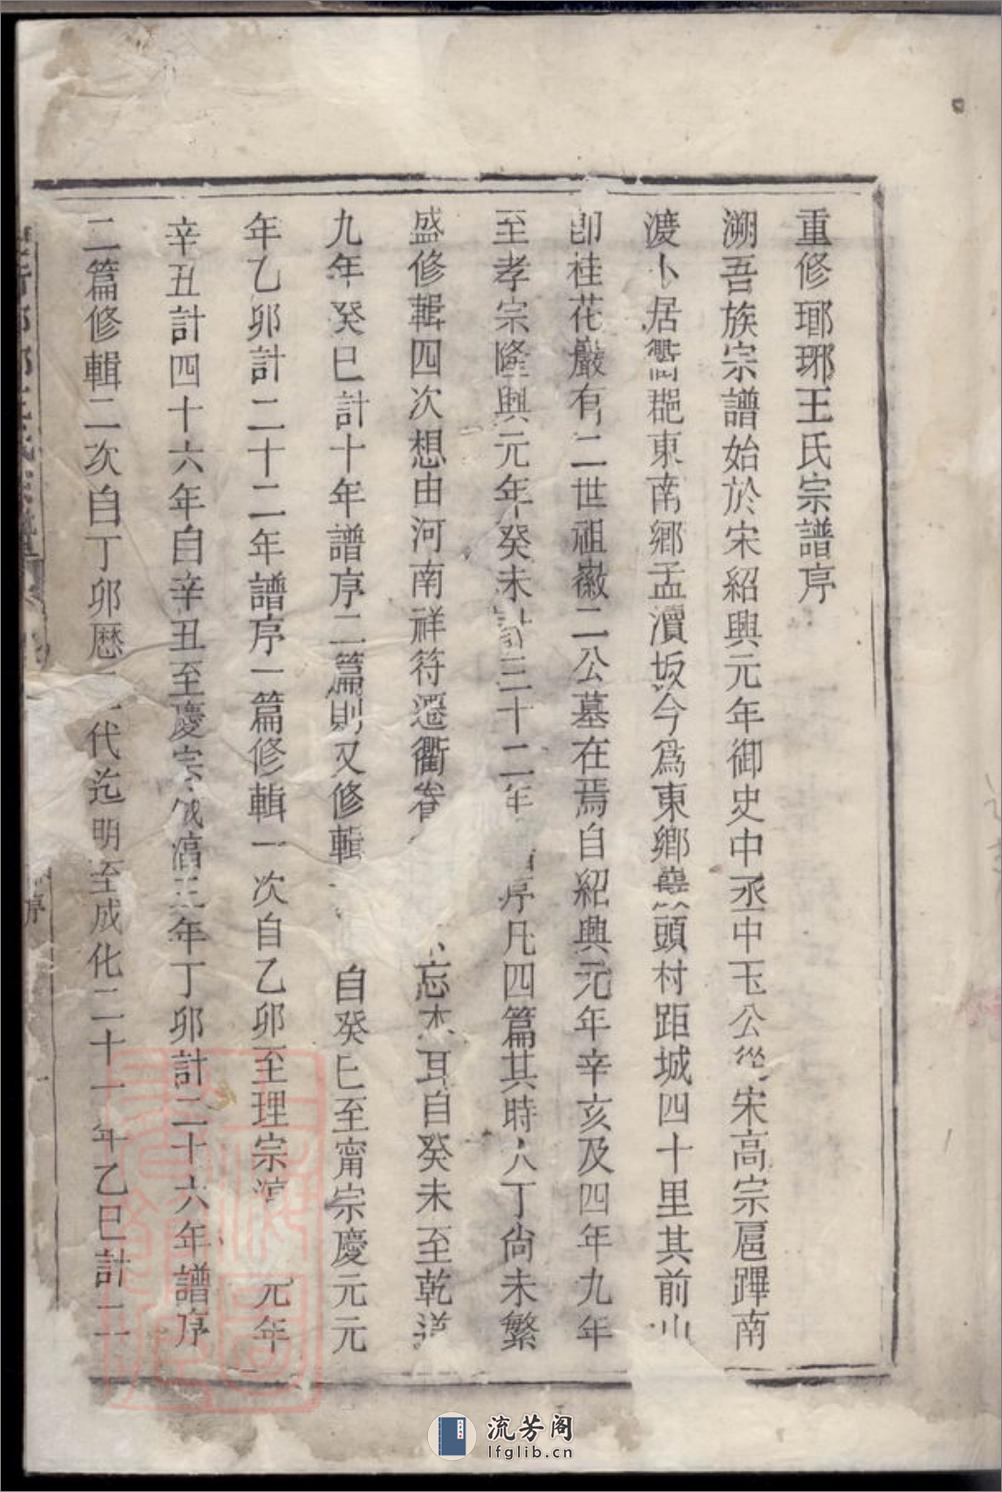 重修瑯琊王氏宗譜序
溯吾族宗譜始於宋紹興元年御史中丞中玉公從宋高宗扈蹕南
渡卜居衢郡東南鄉孟瀆坂今為東鄉頭村距城四十里其前山
即桂花巖有二世祖徽二公墓在焉自紹興元年辛亥及四年九年
至孝宗隆興元年癸未計三十二年序凡四篇其時人丁尙未繁
盛修輯四次想由河南祥符遷衢眷忘本耳自癸未至乾道
九年癸巳計十年譜序二篇則又修輯自癸巳至甯宗慶元元
年乙卯計二十二年譜序一篇修輯一次自乙卯至理宗淳元年
辛丑計四十六年自辛丑至度宗咸淳三年丁卯計二十六年譜序
二篇修輯二次自丁卯歷一代迄明至成化二十一年乙巳計二
序
一
流芳阁
lfglib.cn